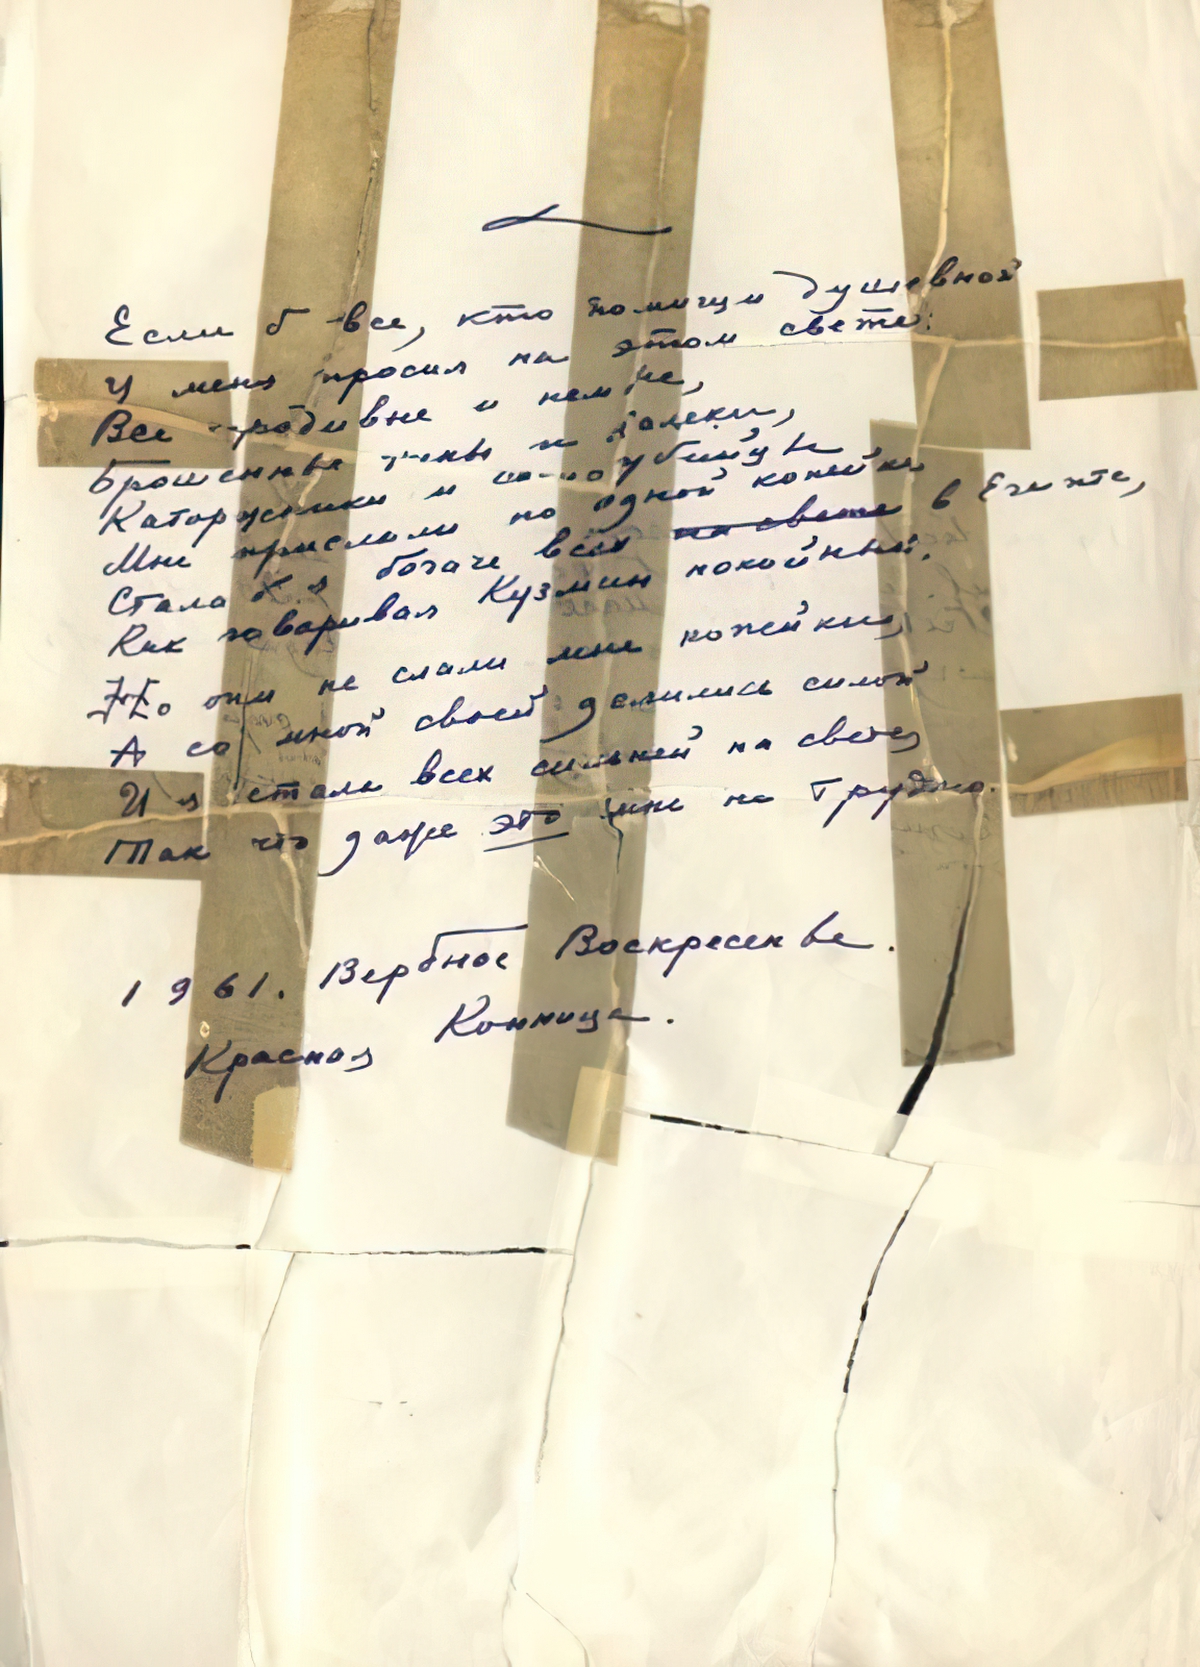 Если б все, кто помощи душевной
У меня просил на этом свете:
Все юродивые и немые,
Брошенные жены и калеки,
Каторжники и самоубийцы
Мне прислали по одной копейке
Стала б я богаче всех на свете в Египте,
Как говаривал Кузмин покойный.
Но они не слали мне копейки,
А со мной своей делились силой
И я стала всех сильней на свете,
Так что даже это мне не трудно.
1961. Вербное Воскресенье.
Красная Конница.